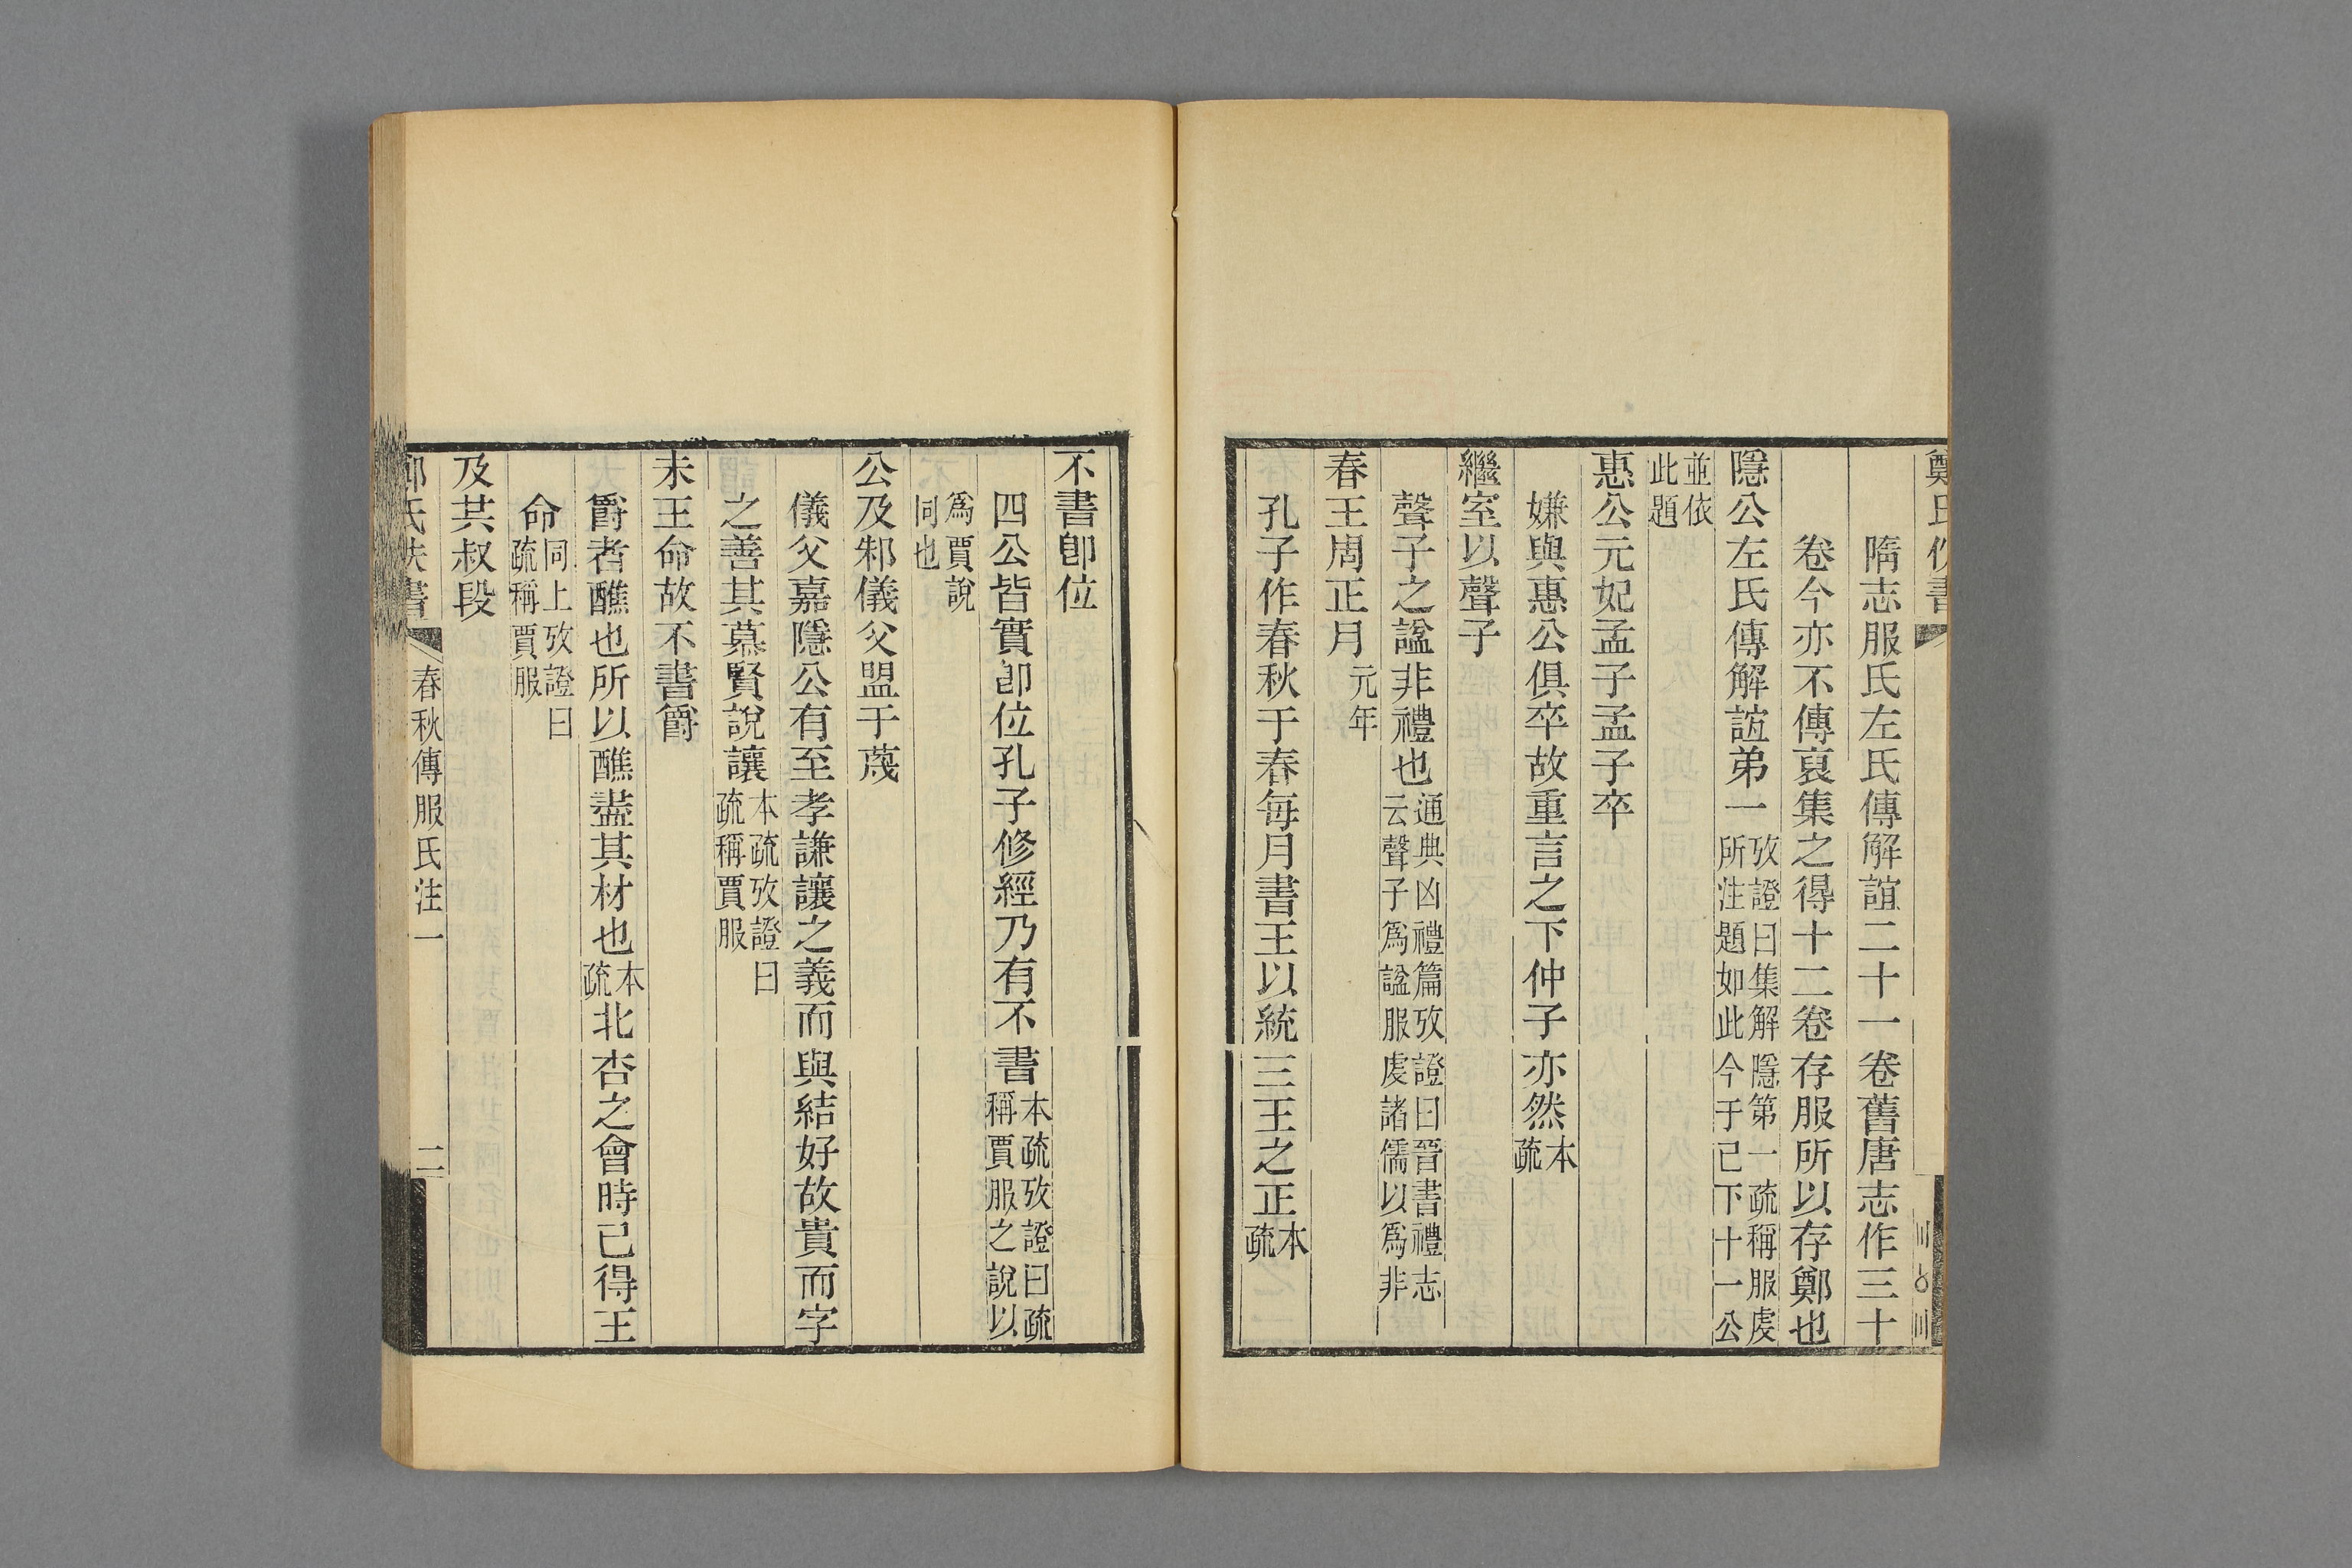 鄭氏佚書
隋志服氏左氏傳解誼二十一卷舊唐志作三十
卷今亦不傳裒集之得十二卷存服所以存鄭也
隱公左氏傳解誼弟一攷證曰集解隱第一疏稱服虔
所注題如此今于已下十一公
並依
此題
惠公元妃孟子孟子卒
嫌與惠公俱卒故重言之下仲子亦然本疏
繼室以聲子
聲子之諡非禮也通典凶禮篇攷證曰晉書禮志
云聲子爲諡服虔諸儒以爲非
春王周正月元年
孔子作春秋于春每月書王以統三王之正本疏
不書卽位
四公皆實卽位孔子修經乃有不書本疏攷證曰疏
稱賈服之說以
爲賈說
同也
公及邾儀父盟于蔑
儀父嘉隱公有至孝謙讓之義而與結好故貴而字
之善其慕賢說讓本疏攷證曰
疏稱賈服
未王命故不書爵
爵者醮也所以醮盡其材也本疏北杏之會時已得王
命同上攷證曰
疏稱賈服
及其叔段
鄭氏佚書
春秋傳服氏注一
二